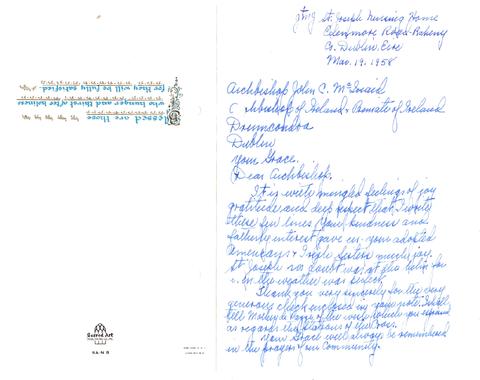 St. Joseph Nursing Home
Edenmore Road - Raheny
Co. Dublin, Eire
Mar. 19. 1958
Archbishop John C. McQuaid
Archbishop of Ireland & Primate of Ireland
Drumcondra
Dublin
Your Grace.
Dear Archbishop.
It is with mingled feelings of joy
gratitude and deep respect that I write
these few lines. Your kindness and
fatherly interest gave us - your adopted
Americans & Irish Sisters much joy.
St. Joseph no doubt was at the helm for
the weather was perfect.
Thank you very sincerely for the very
generous check enclosed in your note. I shall
tell Mother
as regards the Stations of the Cross.
Your Grace will always be remembered
in the prayers of our Community.
Blessed are those
who hunger and thirst after holiness
for they will be fully satisfied.
Sacred Art